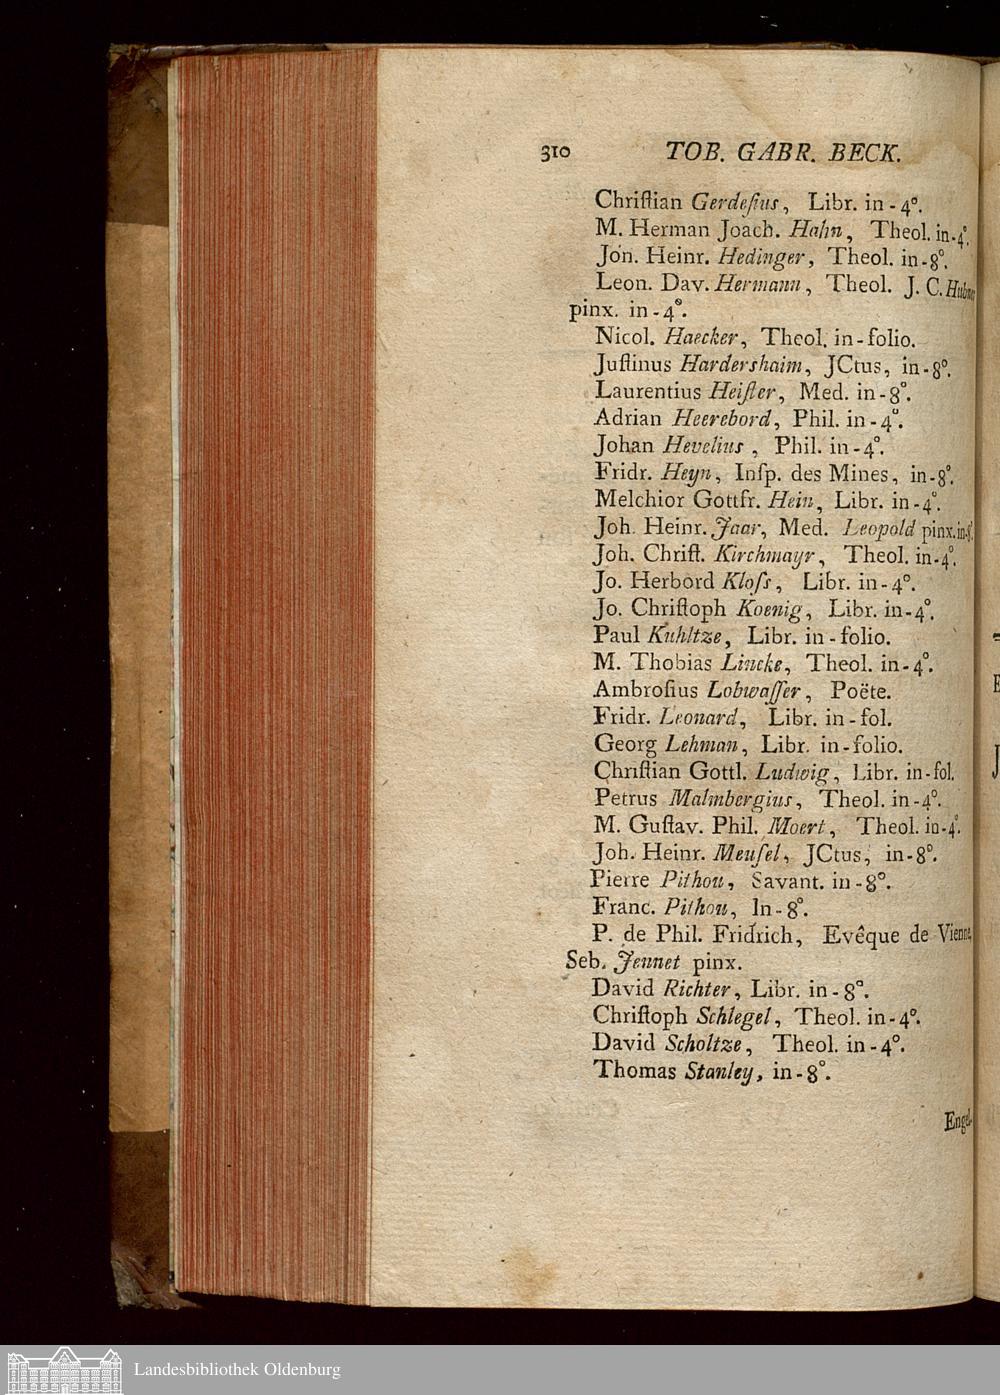 310 TOB. GABR. BECK.
Chriſtian Gerdeſius, Libr. in - 4°.
M. Herman Joach. Hahn, Theol. in-4°.
Joh. Heinr. Hedinger, Theol. in-8°.
Leon. Dav. Hermann, Theol. J. C. Hubner
pinx. in - 4°.
Nicol. Haecker, Theol. in-folio.
Juſtinus Hardershaim, JCtus, in-8°.
Laurentius Heiſter, Med. in-8°.
Adrian Heerebord, Phil. in-4°.
Johan Hevelius, Phil. in-4°.
Fridr. Heyn, Inſp. des Mines, in-8°.
Melchior Gottfr. Hein, Libr. in-4°.
Joh. Heinr. Jaar, Med. Leopold pinx. in-8°.
Joh. Chriſt. Kirchmayr, Theol. in-4°.
Jo. Herbord Kloſs, Libr. in-4°.
Jo. Chriſtoph Koenig, Libr. in-4°.
Paul Kuhltze, Libr. in-folio.
M. Thobias Lincke, Theol. in-4°.
Ambroſius Lobwaſſer, Poëte.
Fridr. Leonard, Libr. in-fol.
Georg Lehman, Libr. in-folio.
Chriſtian Gottl. Ludwig, Libr. in-fol.
Petrus Malmbergius, Theol. in-4°.
M. Guſtav. Phil. Moert, Theol. in-4°.
Joh. Heinr. Meuſel, JCtus, in-8°.
Pierre Pithou, Savant. in-8°.
Franc. Pithou, In-8°.
P. de Phil. Fridrich, Evêque de Vienne,
Seb. Jennet pinx.
David Richter, Libr. in-8°.
Chriſtoph Schlegel, Theol. in-4°.
David Scholtze, Theol. in-4°.
Thomas Stanley, in-8°.
Engel-
Landesbibliothek Oldenburg